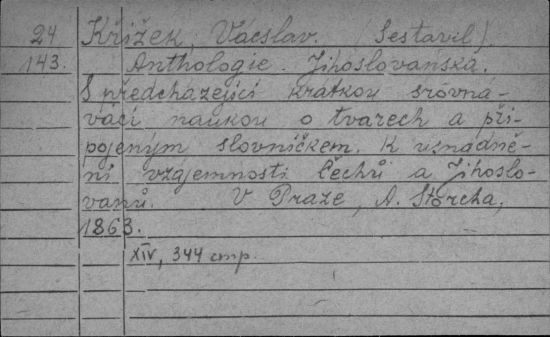 24 Křížek, Václav. (Sestavil).
143. Anthologie Jihoslovanská.
S předcházející krátkou srovná-
vací naukou o tvarech a při-
pojeným slovníčkem. K usnadně-
ní vzájemnosti Čechů a Jihoslo-
vanů. V Praze, A. Štorcha,
1863.
XIV, 344 стр.